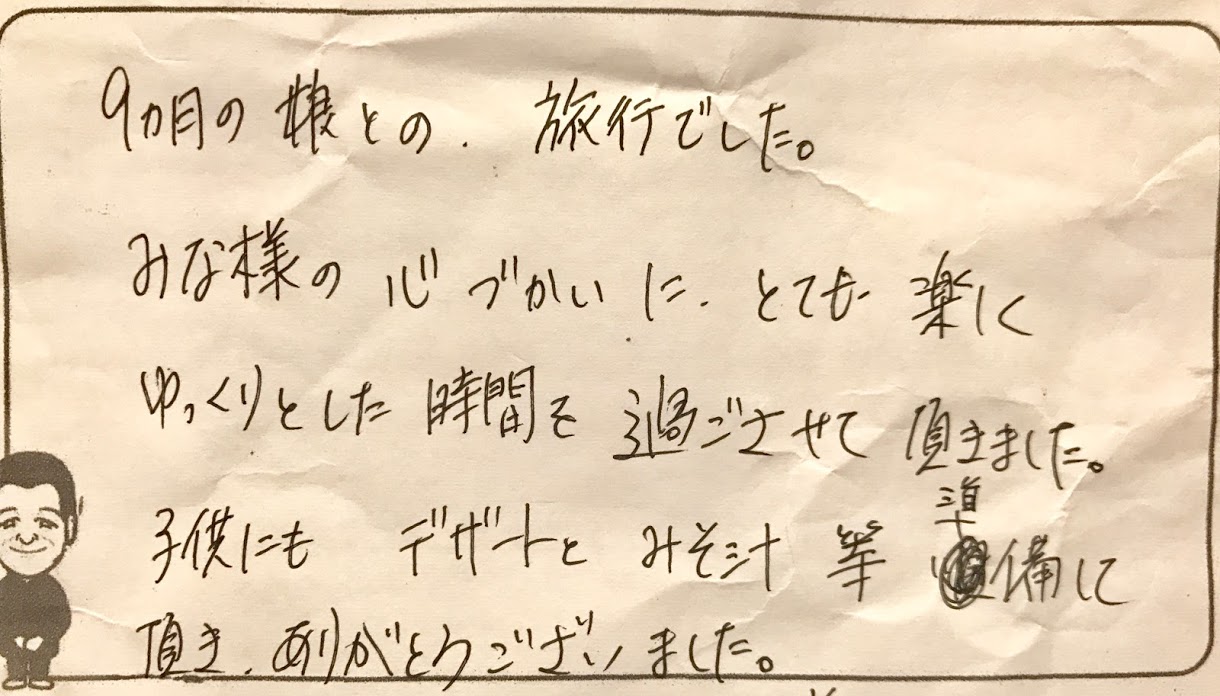 9ヵ月の娘との、旅行でした。
みな様の心づかいに、とても楽しく
ゆっくりとした時間を過ごさせて頂きました。
子供にもデザートとみそ汁等準備して
頂き、ありがとうございました。